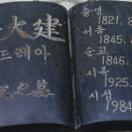 大建
드레아
之墓
승생 1821. 8
서품 1845.
순교 1846.
시복 1925.
시성 1984.